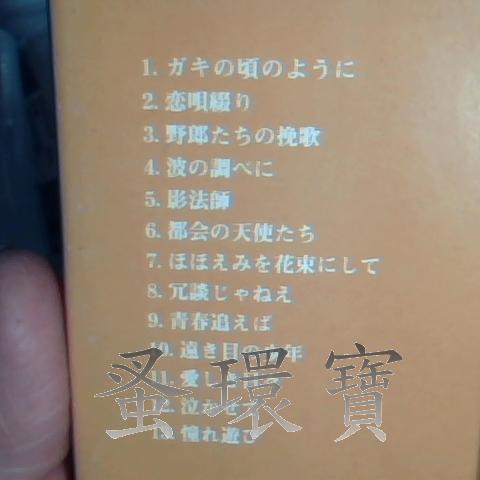 1. ガキの頃のように
2. 恋唄綴り
3. 野郎たちの挽歌
4. 波の調べに
5. 影法師
6. 都会の天使たち
7. ほほえみを花束にして
8. 冗談じゃねえ
9. 青春追えば
10. 遠き目の少年
11. 愛し
12. 泣かせて
13. 憧れ遊び
蚤環寶